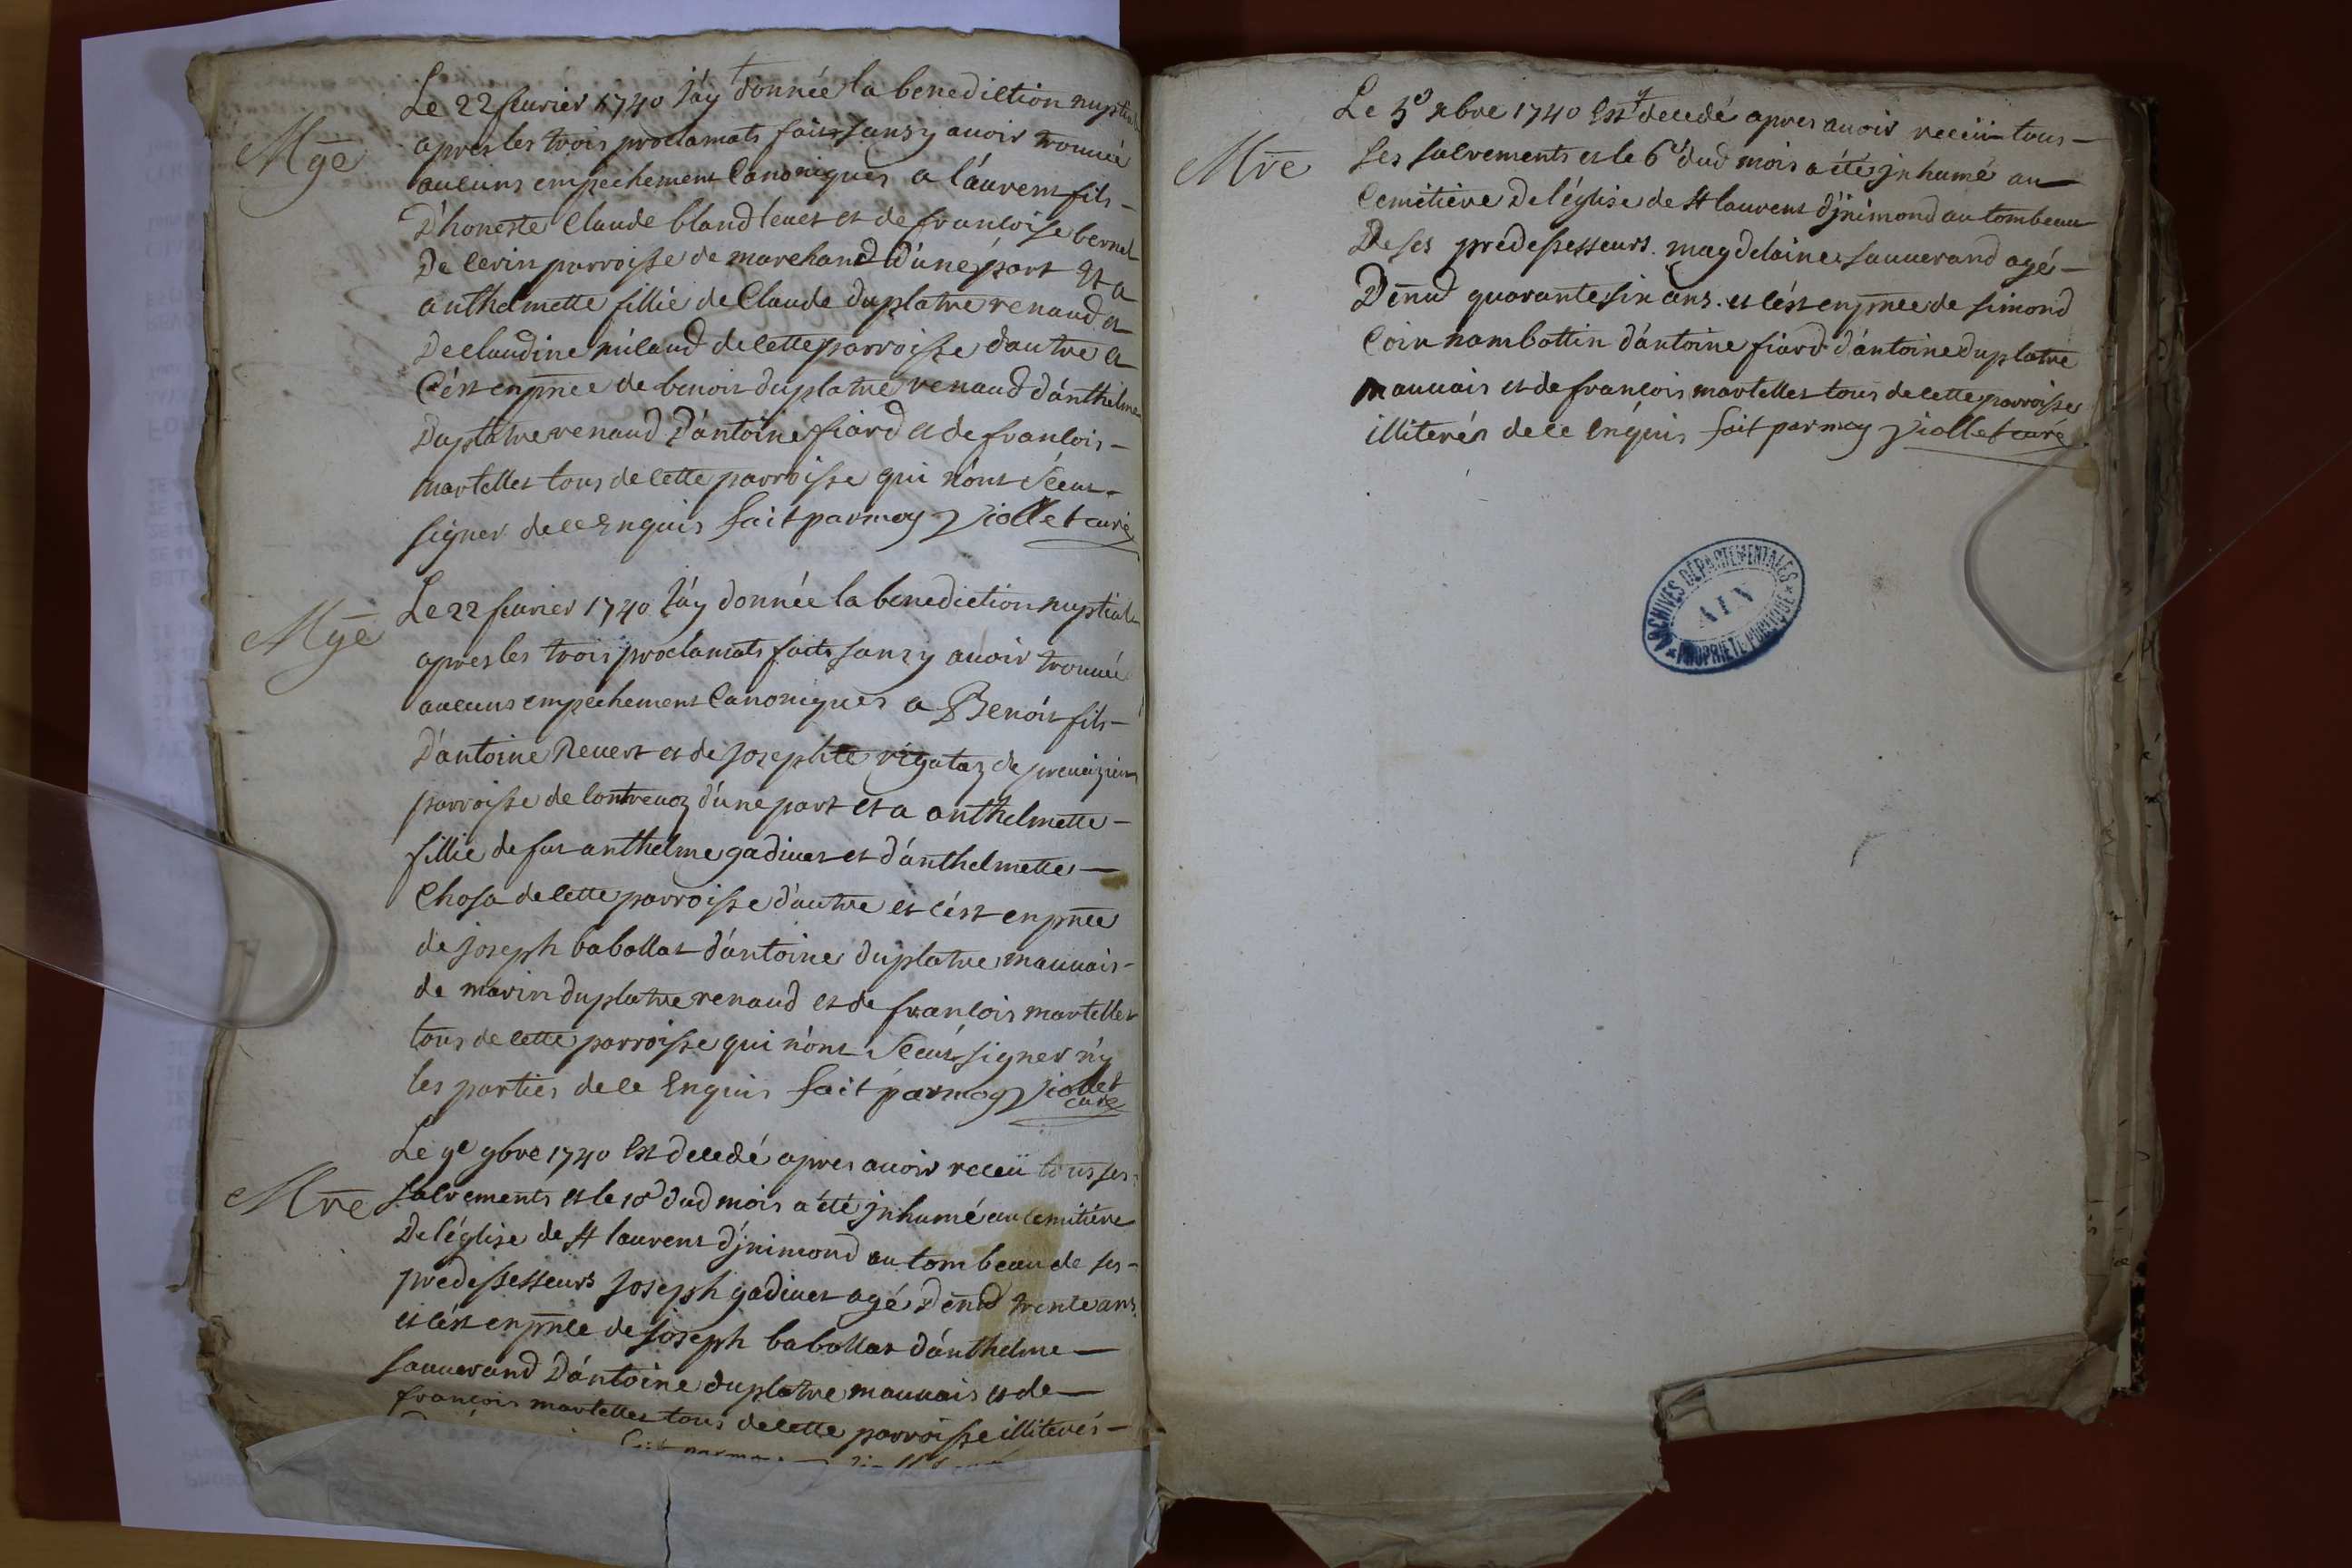 Mge
Le 22 feuvrier 1740 J'ay donnée la benediction nuptiale
apres les trois proclamats faits sans y avoir trouuée
aucuns empechement Canoniques a laurent fils
D'honeste Claude bland leuet et de francoise bernet
De cerin parroisse de marchand d'une part Et a
anthelmette fillie de Claude duplatre renaud et
De claudine milaud de cette parroisse d'autre et
C'ést en pnce de benoit duplatre renaud d'anthelme
Duplatre renaud D'antoine fiard et de francois
martellet tous de cette parroisse qui n'ont Sceut
signer de ce Enquis fait par moy Viollet curé
Mge
Le 22 feuvrier 1740 J'ay donnée la benediction nuptiale
apres les trois proclamats faits sans y avoir trouuée
aucuns empechement Canoniques a Benoit fils
D'antoine Reuert et de Josephte rigotaz de premizieu
parroisse de Contreuoz d'une part et a anthelmette
fillie de fut anthelme gadiuet et d'anthelmette
Chosa de cette parroisse d'autre et c'ést en pnce
de joseph babollat d'antoine duplatre mauuais
de marin duplatre renaud et de francois martellet
tous de cette parroisse qui n'ont Sceut signer n'y
les parties de ce Enquis fait par moy Viollet
curé
Mre
Le 9e 9bre 1740 Est decedé apres avoir receu tous ses
sacrements et le 10e dud mois a été jnhumé au cemitiére
De l'église de St laurent d'jnimond au tombeau de ses
predessesseurs Joseph gadiuet agé D'énud trente ans
et c'ést en pnce de joseph babollat d'anthelme
sauuerand D'antoine duplatre mauuais et de
francois martellet tous de cette parroisse illiterés
fait par moy
Mre
Le 5e xbre 1740 Est decedé apres avoir receu tous
ses sacrements et le 6e dud mois a été jnhumé au
Cemitiére De l'église de St laurent d'jnimond au tombeau
De ses predessesseurs magdelaine sauuerand agé
D'énud quarante six ans et c'ést en pnce de simond
Coin nambottin d'antoine fiard d'antoine duplatre
mauuais et de francois martellet tous de cette parroisse
illiterés de ce Enquis fait par moy Viollet curé
ARCHIVES DÉPARTEMENTALES
AIN
PROPRIÉTÉ PUBLIQUE